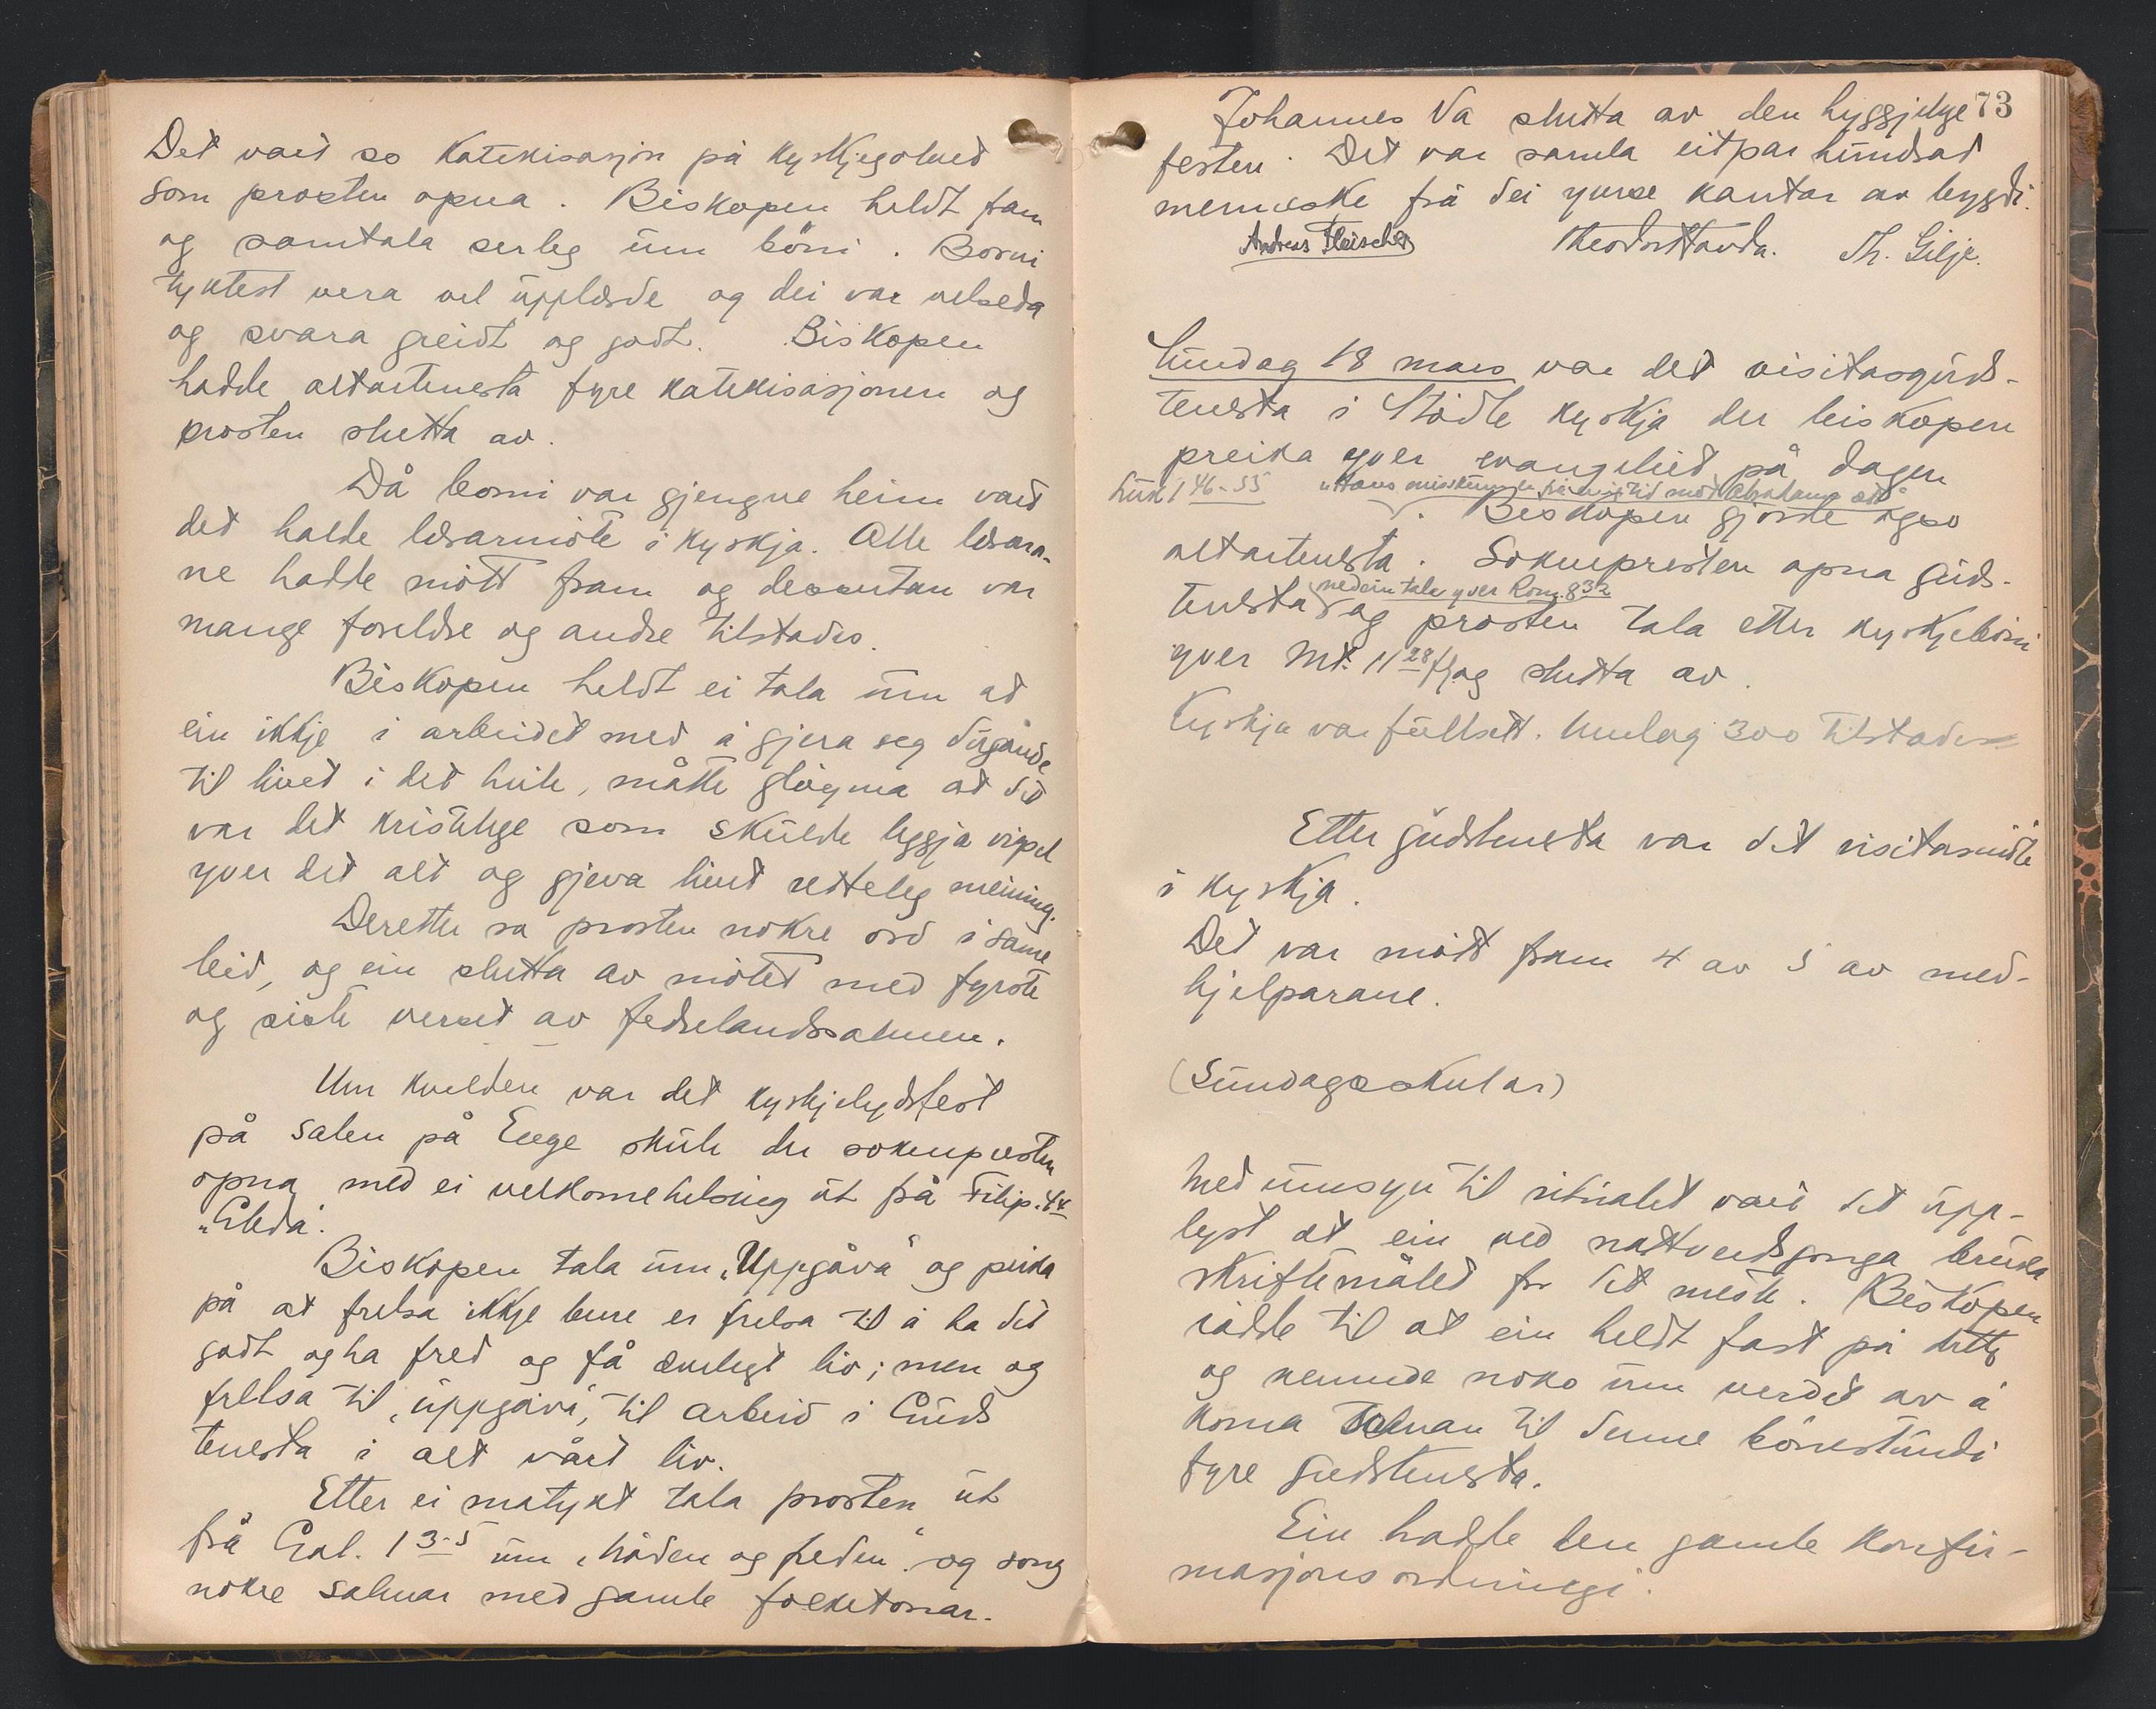 Det vart so katekisasjon på kyrkjegolvet
som prosten opna. Biskopen heldt fram
og samtala serleg um bøni. Borni
tyktest vera vel upplærde og dei var velseda
og svara greidt og godt. Biskopen
hadde altartenesta fyre katekisasjonen og
prosten slutta av.
Då borni var gjengne heim vart
det halde lærarmøte i kyrkja. Alle lærara-
ne hadde møtt fram og dessutan var
mange foreldre og andre tilstades.
Biskopen heldt ei tala um at
ein ikkje i arbeidet med å gjera seg dugande
til livet i det heile, måtte gløyma at det
var det kristelege som skulde leggja vigsel
yver det alt og gjeva livet retteleg meining.
Deretter sa prosten nokre ord i same
leid, og ein slutta av møtet med fyrste
og siste verset av fedrelandssalmen.
Um kvelden var det kyrkjelydsfest
på salen på Enge skule der soknepresten
opna med ei velkomehelsing ut frå Filip. 4 4
„Gleda“.
Biskopen tala um „Uppgåva“ og peika
på at frelsa ikkje bere er frelsa til å ha det
godt og ha fred og få ævelegt liv; men og
frelsa til „uppgåva“, til arbeid i Guds
tenesta i alt vårt liv.
Etter ei matykt tala prosten ut
frå Gal. 1 3-5 um „nåden og freden“ og song
nokre salmar med gamle folketonar.
73
Johannes Va slutta av den hyggjelege
festen. Det var samla eit par hundrad
menneske frå dei ymse kantar av bygdi.
Andreas Fleischer Theodor Handa. Th. Gilje.
Sundag 18 mars var det visitasguds-
tenesta i Stødle kyrkja der biskopen
preika yver evangeliet på dagen
Luk 1 46-55 „Hans miskunn er frå ævig tid mot Abrahams ætt“
. Biskopen gjorde ogso
altartenesta. Soknepresten opna guds-
med ein tale yver Rom. 8 32
tenesta og prosten tala etter kyrkjebøni
yver Mt. 11 28 flg og slutta av.
Kyrkja var fullsett. Umlag 300 tilstades
Etter gudstenesta var det visitasmøte
i kyrkja.
Det var møtt fram 4 av 5 av med-
hjelparane.
(Sundagsskular)
Med umsyn til ritualet vart det upp-
lyst at ein ved nattverdsgonga bruka
skriftemålet for det meste. Biskopen
rådde til at ein heldt fast på dette
og nemnde noko um verdet av å
koma saman til denne bønestundi
fyre gudstenesta.
Ein hadde den gamle konfir-
masjonsordningi.